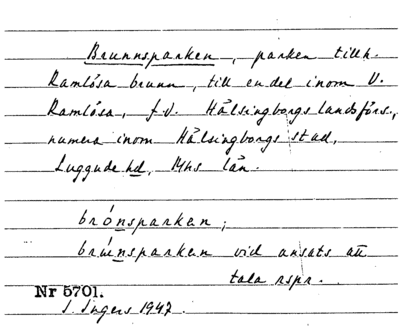 Brunnsparken, parken tillh.
Ramlösa brunn, till en del inom V.
Ramlösa, f.d. Hälsingborgs landsförs.,
numera inom Hälsingborgs stad,
Luggude hd, Mhs län.
brónsparken;
brúnsparken vid ansats att
tala rspr.
Nr 5701.
I. Ingers 1947.